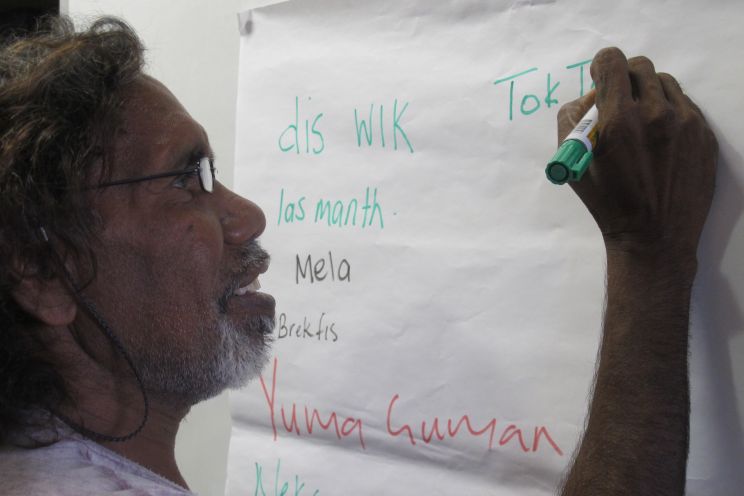 Tok
dis WIK
las manth.
Mela
Brekfis
Yuma Guman